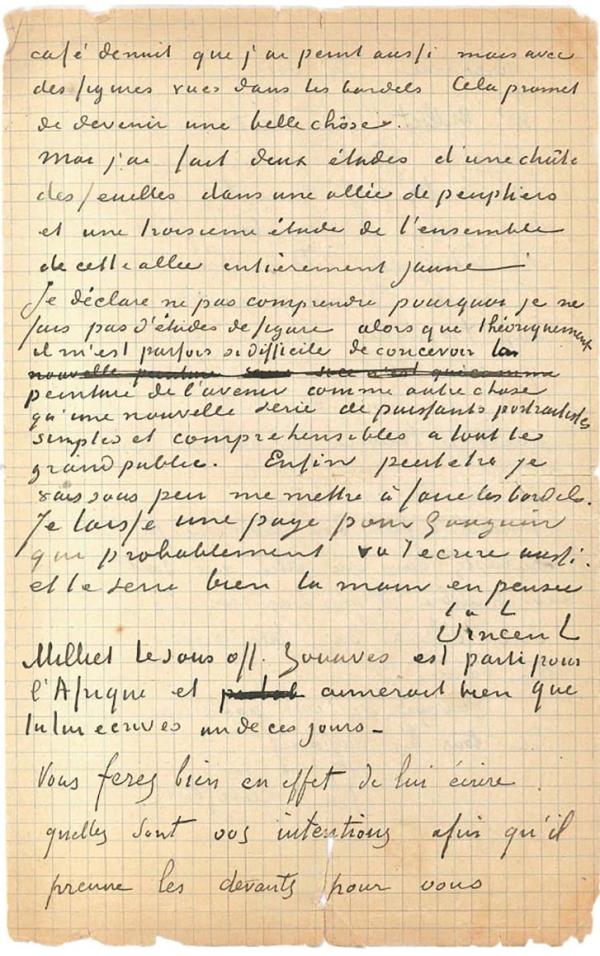 café de nuit que j'ai peint aussi mais avec
des figures vues dans les bordels Cela promet
de devenir une belle chôse.
Moi j'ai fait deux études d'une chûte
des feuilles dans une allée de peupliers
et une troisieme étude de l'ensemble
de cette allée entièrement jaune
Je déclare ne pas comprendre pourquoi je ne
fais pas d'études de figure alors que théoriquement
il m'est parfois si difficile de concevoir la
nouvelle peinture c'est que comme
peinture de l'avenir comme autre chose
qu'une nouvelle serie de puissants portraitistes
simples et comprehensibles a tout le
grand public. Enfin peut etre je
vais sous peu me mettre à faire les bordels.
Je laisse une page pour Gauguin
qui probablement va t'ecrire aussi.
et te serre bien la main en pensée
t. à t.
Vincent
Milliet le sous off. Zouaves est parti pour
l'Afrique et aimerait bien que
tu lui ecrives un de ces jours_
Vous ferez bien en effet de lui écrire
quelles sont vos intentions afin qu'il
prenne les devants pour vous